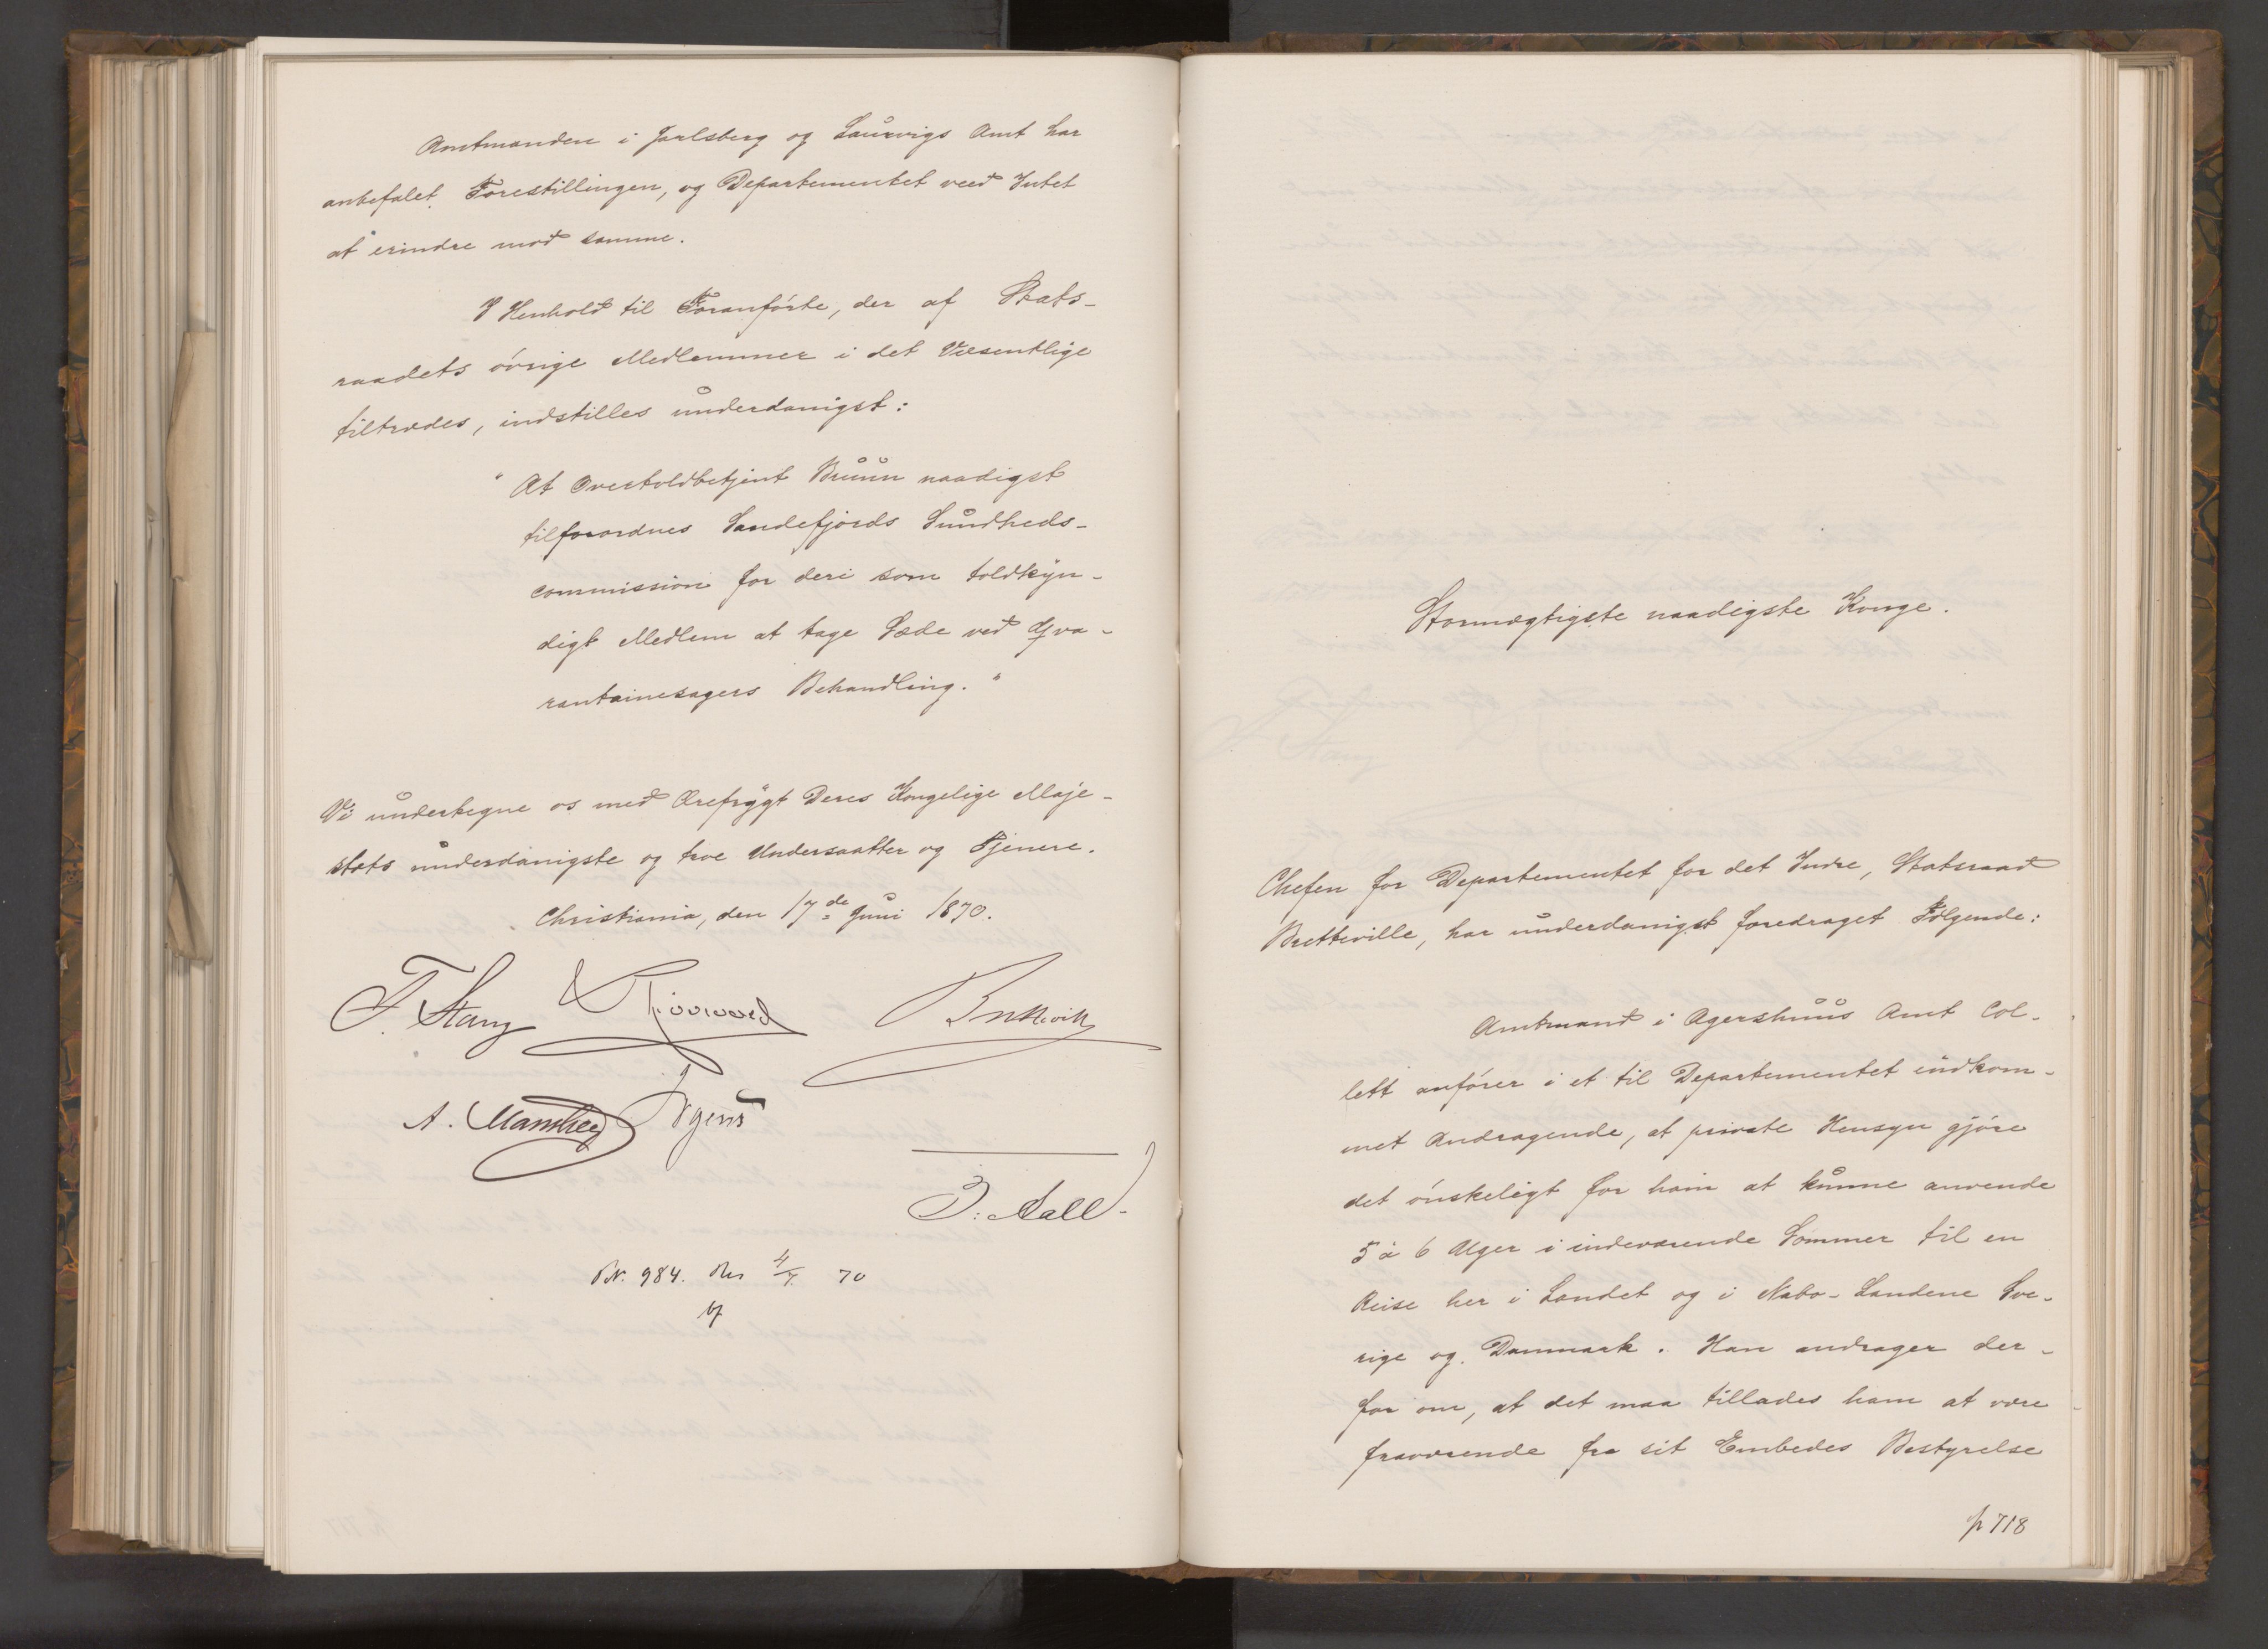 Amtmanden i Jarlsberg og Laurvigs Amt har
anbefalet Forestillingen, og Departementet veed Intet
at erindre mod samme.
I Henhold til Foranførte, der af Stats-
raadets øvrige Medlemmer i det Væsentlige
tiltrædes, indstilles underdanigst:
"At Overtoldbetjent Bruun naadigst
tilforordnes Sandefjords Sundheds-
commission for deri som toldkyn-
digt Medlem at tage Sæde ved Qva-
rantainesagers Behandling."
Vi undertegne os med Ærefrygt Deres Kongelige Maje-
stæts underdanigste og troe Undersaatter og Tjenere.
Christiania, den 17de Juni 1870.
F. Stang
Bretteville
A. Manthey Irgens
J. Aall.
PN. 984. Res 4/7 70
Stormægtigste naadigste Konge.
Chefen for Departementet for det Indre, Statsraad
Bretteville, har underdanigst foredraget Følgende:
Amtmand i Agershuus Amt Col-
lett anfører i et til Departementet indkom-
met Andragende, at private Hensyn gjøre
det ønskeligt for ham at kunne anvende
5 à 6 Uger i indeværende Sommer til en
Reise her i Landet og i Nabo-Landene Sve-
rige og Danmark. Han andrager der-
for om, at det maa tillades ham at være
fraværende fra sit Embedes Bestyrelse
p 718